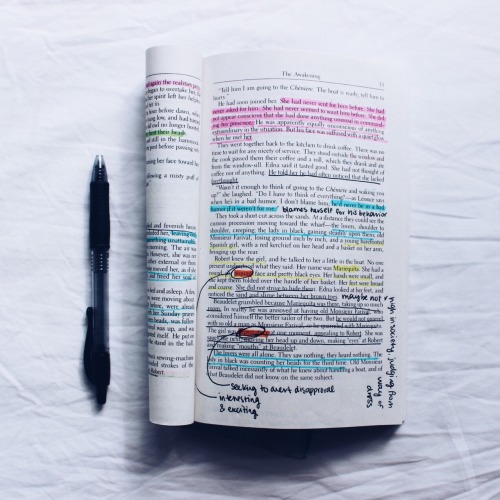 again the realities pr
began to overtake her, fa
her spirit left her helples
hour before dawn, wh
ng low, and had turned
no longer hooted,
bent their heads
still in the harmony
before passing in
ing her face toward he
following a misty puff
and feverish hours,
leaving on
unattainable
However, she was
external or from
moved her, as if sh
freed her soul
and asleep. A few
were moving about
were, were already
Sunday prayer
beads, was
was up, and with
himself. He put on
sewing-machine
strokes of the
The Awakening
33
"Tell him I am going to the Chênière. The boat is ready, tell him to
hurry."
He had soon joined her. She had never sent for him before. She had
never asked for him. She had never seemed to want him before. She did
not appear conscious that she had done anything unusual in command-
ing his presence. He was apparently equally unconscious of anything
extraordinary in the situation. But his face was suffused with a quiet glow
when he met her.
They went together back to the kitchen to drink coffee. There was no
time to wait for any nicety of service. They stood outside the window and
the cook passed them their coffee and a roll, which they drank and ate
from the window-sill. Edna said it tasted good. She had not thought of
coffee nor of anything. He told her he had often noticed that she lacked
forethought.
"Wasn't it enough to think of going to the Chênière and waking you
up?" she laughed. "Do I have to think of everything?—as Leonce says
when he's in a bad humor. I don't blame him; he'd never be in a bad
humor if it weren't for me." blames herself for his behavior
They took a short cut across the sands. At a distance they could see the
curious procession moving toward the wharf—the lovers, shoulder to
shoulder, creeping; the lady in black, gaining steadily upon them; old
Monsieur Farival, losing ground inch by inch, and a young barefooted
Spanish girl, with a red kerchief on her head and a basket on her arm,
bringing up the rear.
Robert knew the girl, and he talked to her a little in the boat. No one
present understood what they said. Her name was Mariequita. She had a
round, face and pretty black eyes. Her hands were small, and
she kept them folded over the handle of her basket. Her feet were broad
and coarse. She did not strive to hide them. Edna looked at her feet, and
noticed the sand and slime between her brown toes. maybe not
Beaudelet grumbled because Mariequita was there, taking up so much
room. In reality he was annoyed at having old Monsieur Farival, who
considered himself the better sailor of the two. But he would not quarrel
with so old a man as Monsieur Farival, so he quarreled with Mariequita.
The girl was at one moment, appealing to Robert. She was
the next, moving her head up and down, making "eyes" at Robert
and making "mouths" at Beaudelet.
The lovers were all alone. They saw nothing, they heard nothing. The
lady in black was counting her beads for the third time. Old Monsieur
Farival talked incessantly of what he knew about handling a boat, and of
what Beaudelet did not know on the same subject.
seeking to avert disapproval
interesting
& exciting
high in society, judging by
way of
dress